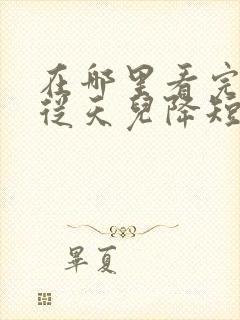 在那里看完
從天兒降短
畢夏